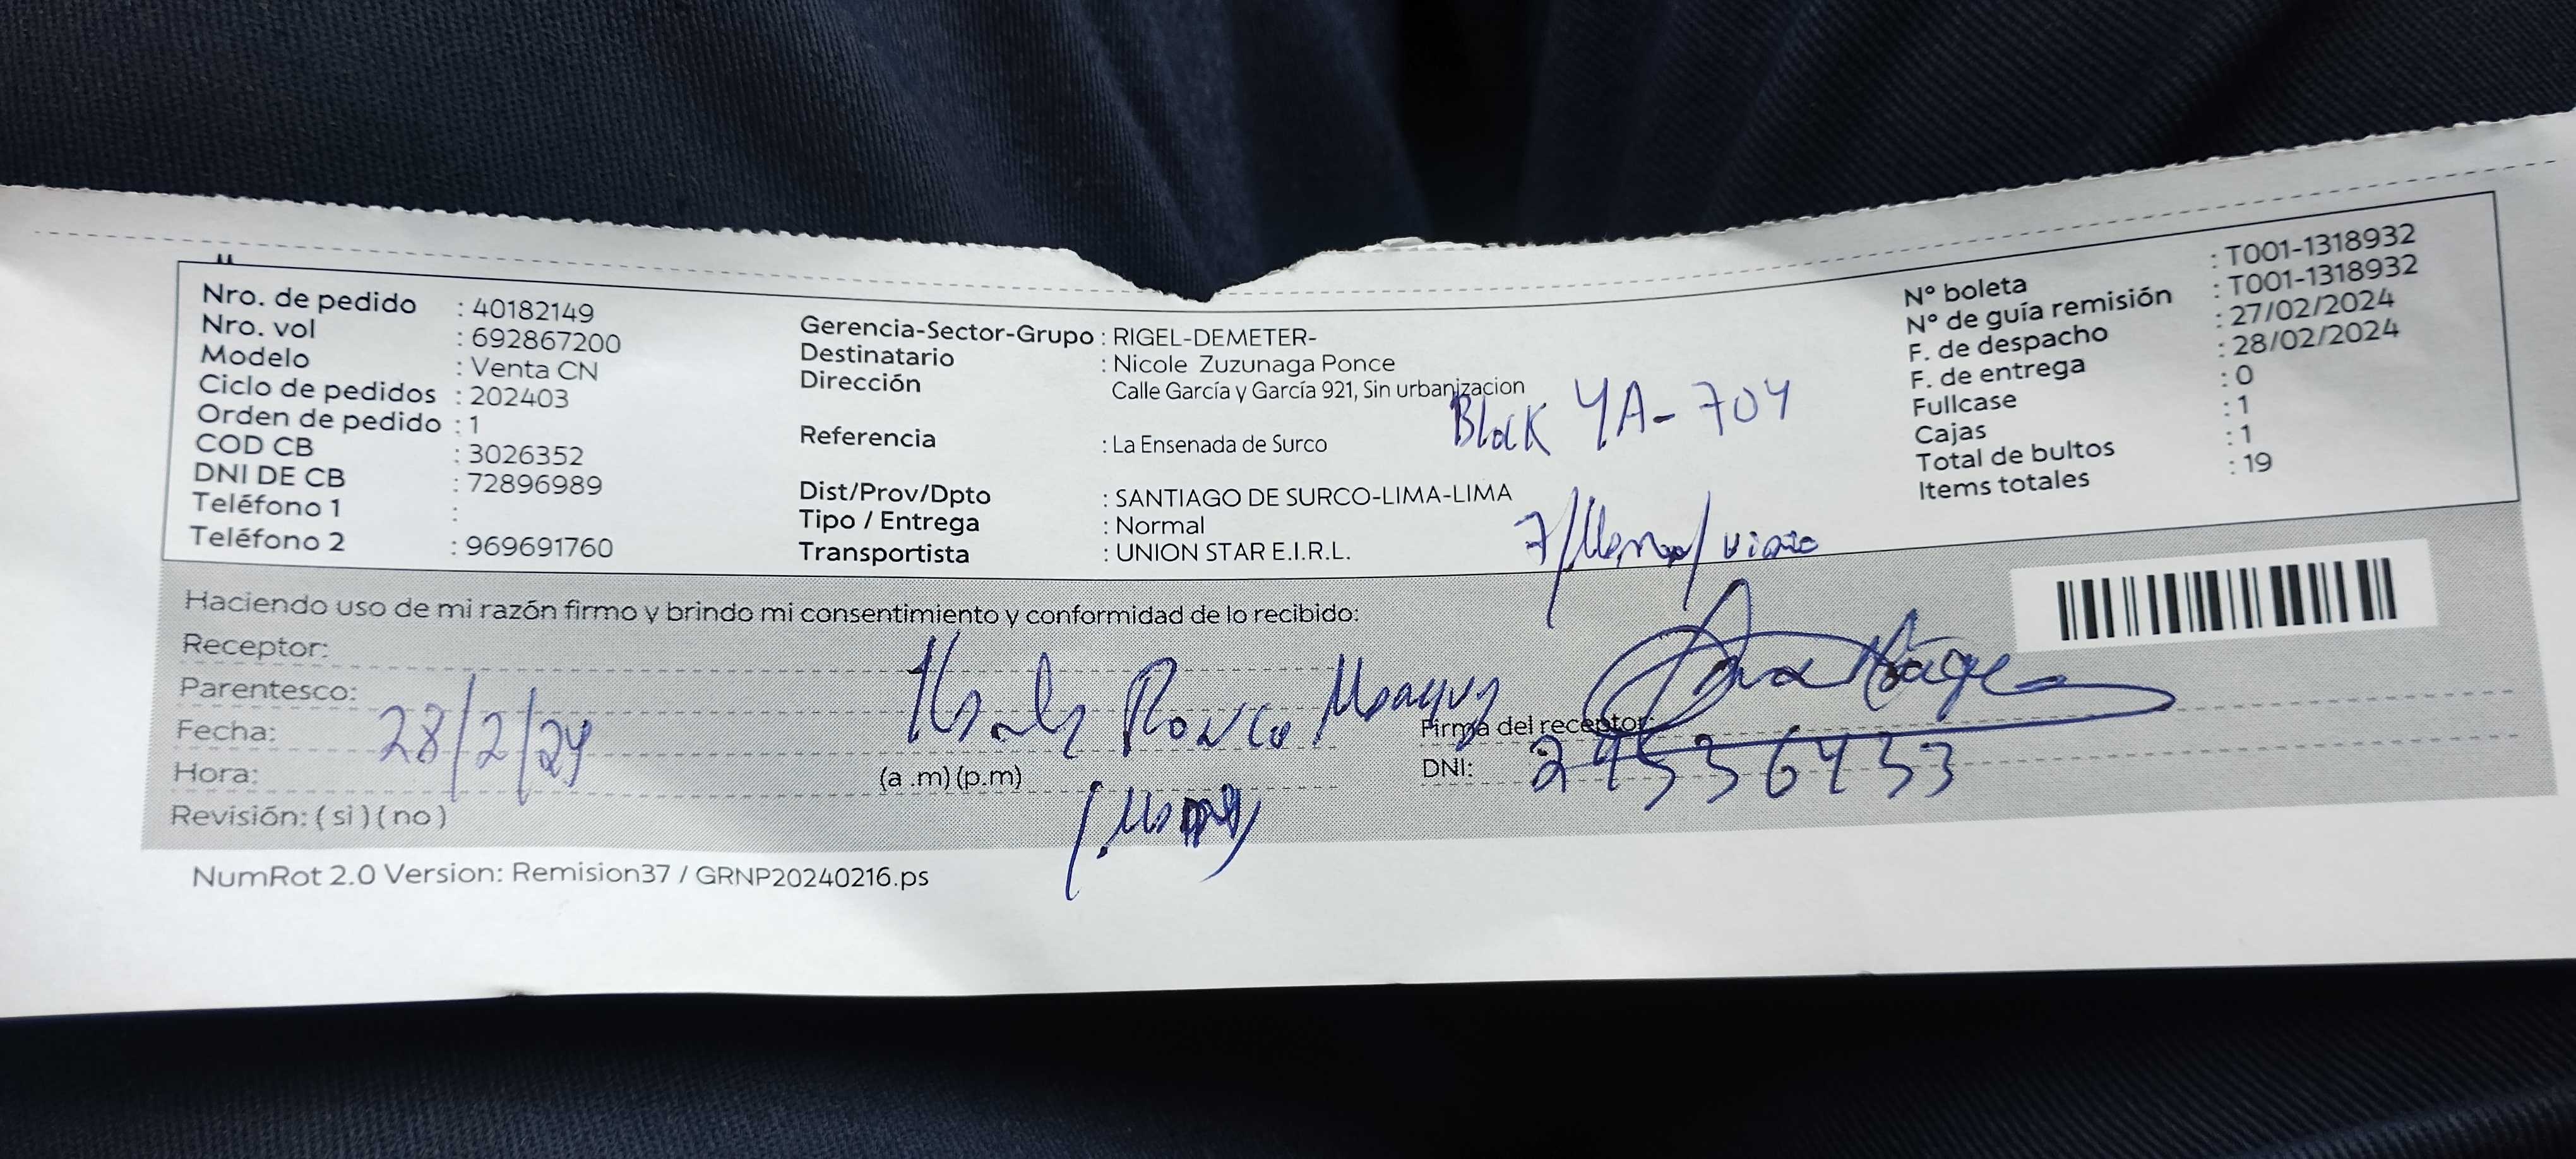 Nro. de pedido : 40182149
Nro. vol : 692867200
Modelo : Venta CN
Ciclo de pedidos : 202403
Orden de pedido : 1
COD CB : 3026352
DNI DE CB : 72896989
Teléfono 1 :
Teléfono 2 : 969691760
Gerencia-Sector-Grupo : RIGEL-DEMETER-
Destinatario : Nicole Zuzunaga Ponce
Dirección Calle García y García 921, Sin urbanizacion
Block 4A-704
Referencia : La Ensenada de Surco
Dist/Prov/Dpto : SANTIAGO DE SURCO-LIMA-LIMA
Tipo / Entrega : Normal
Transportista : UNION STAR E.I.R.L.
N° boleta : T001-1318932
N° de guía remisión : T001-1318932
F. de despacho : 27/02/2024
F. de entrega : 28/02/2024
Fullcase : 0
Cajas : 1
Total de bultos : 1
Items totales : 19
Haciendo uso de mi razón firmo y brindo mi consentimiento y conformidad de lo recibido:
Receptor:
Parentesco:
Fecha: 28/2/24
Hora: (a .m) (p.m)
Revisión: ( si ) ( no )
Firma del receptor:
DNI:
NumRot 2.0 Version: Remision37 / GRNP20240216.ps